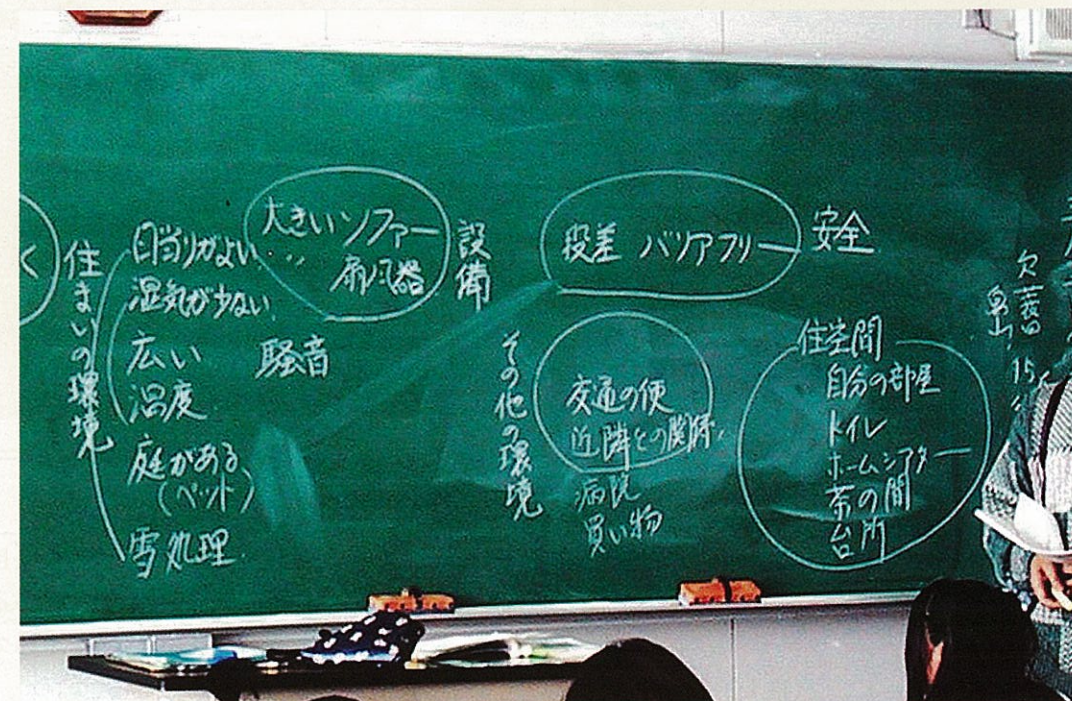 く
住まいの環境
日当りがよい
湿気が少ない
広い
温度
庭がある
(ペット)
雪処理
大きいソファー
扇風器
設備
騒音
段差 バリアフリー
安全
その他の環境
交通の便
近隣との関係
病院
買い物
住空間
自分の部屋
トイレ
ホームシアター
茶の間
台所
欠
15